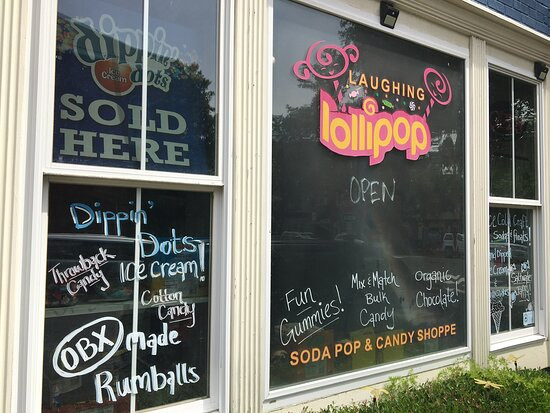 dippin' dots
Ice Cream
SOLD
HERE
Dippin'
Dots
ICE CREAM!
Throwback
Candy
Cotton
Candy
OBX Made
Rumballs
LAUGHING
lollipop
OPEN
Fun
Gummies!
Mix & Match
Bulk
Candy
Organic
Chocolate!
SODA POP & CANDY SHOPPE
Craft